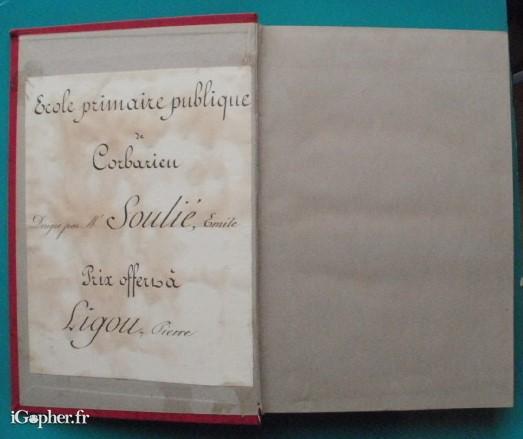 Ecole primaire publique
de
Corbarieu
Dirigée par Mr Soulié, Emile
Prix offert à
Ligou, Pierre
iGopher.fr